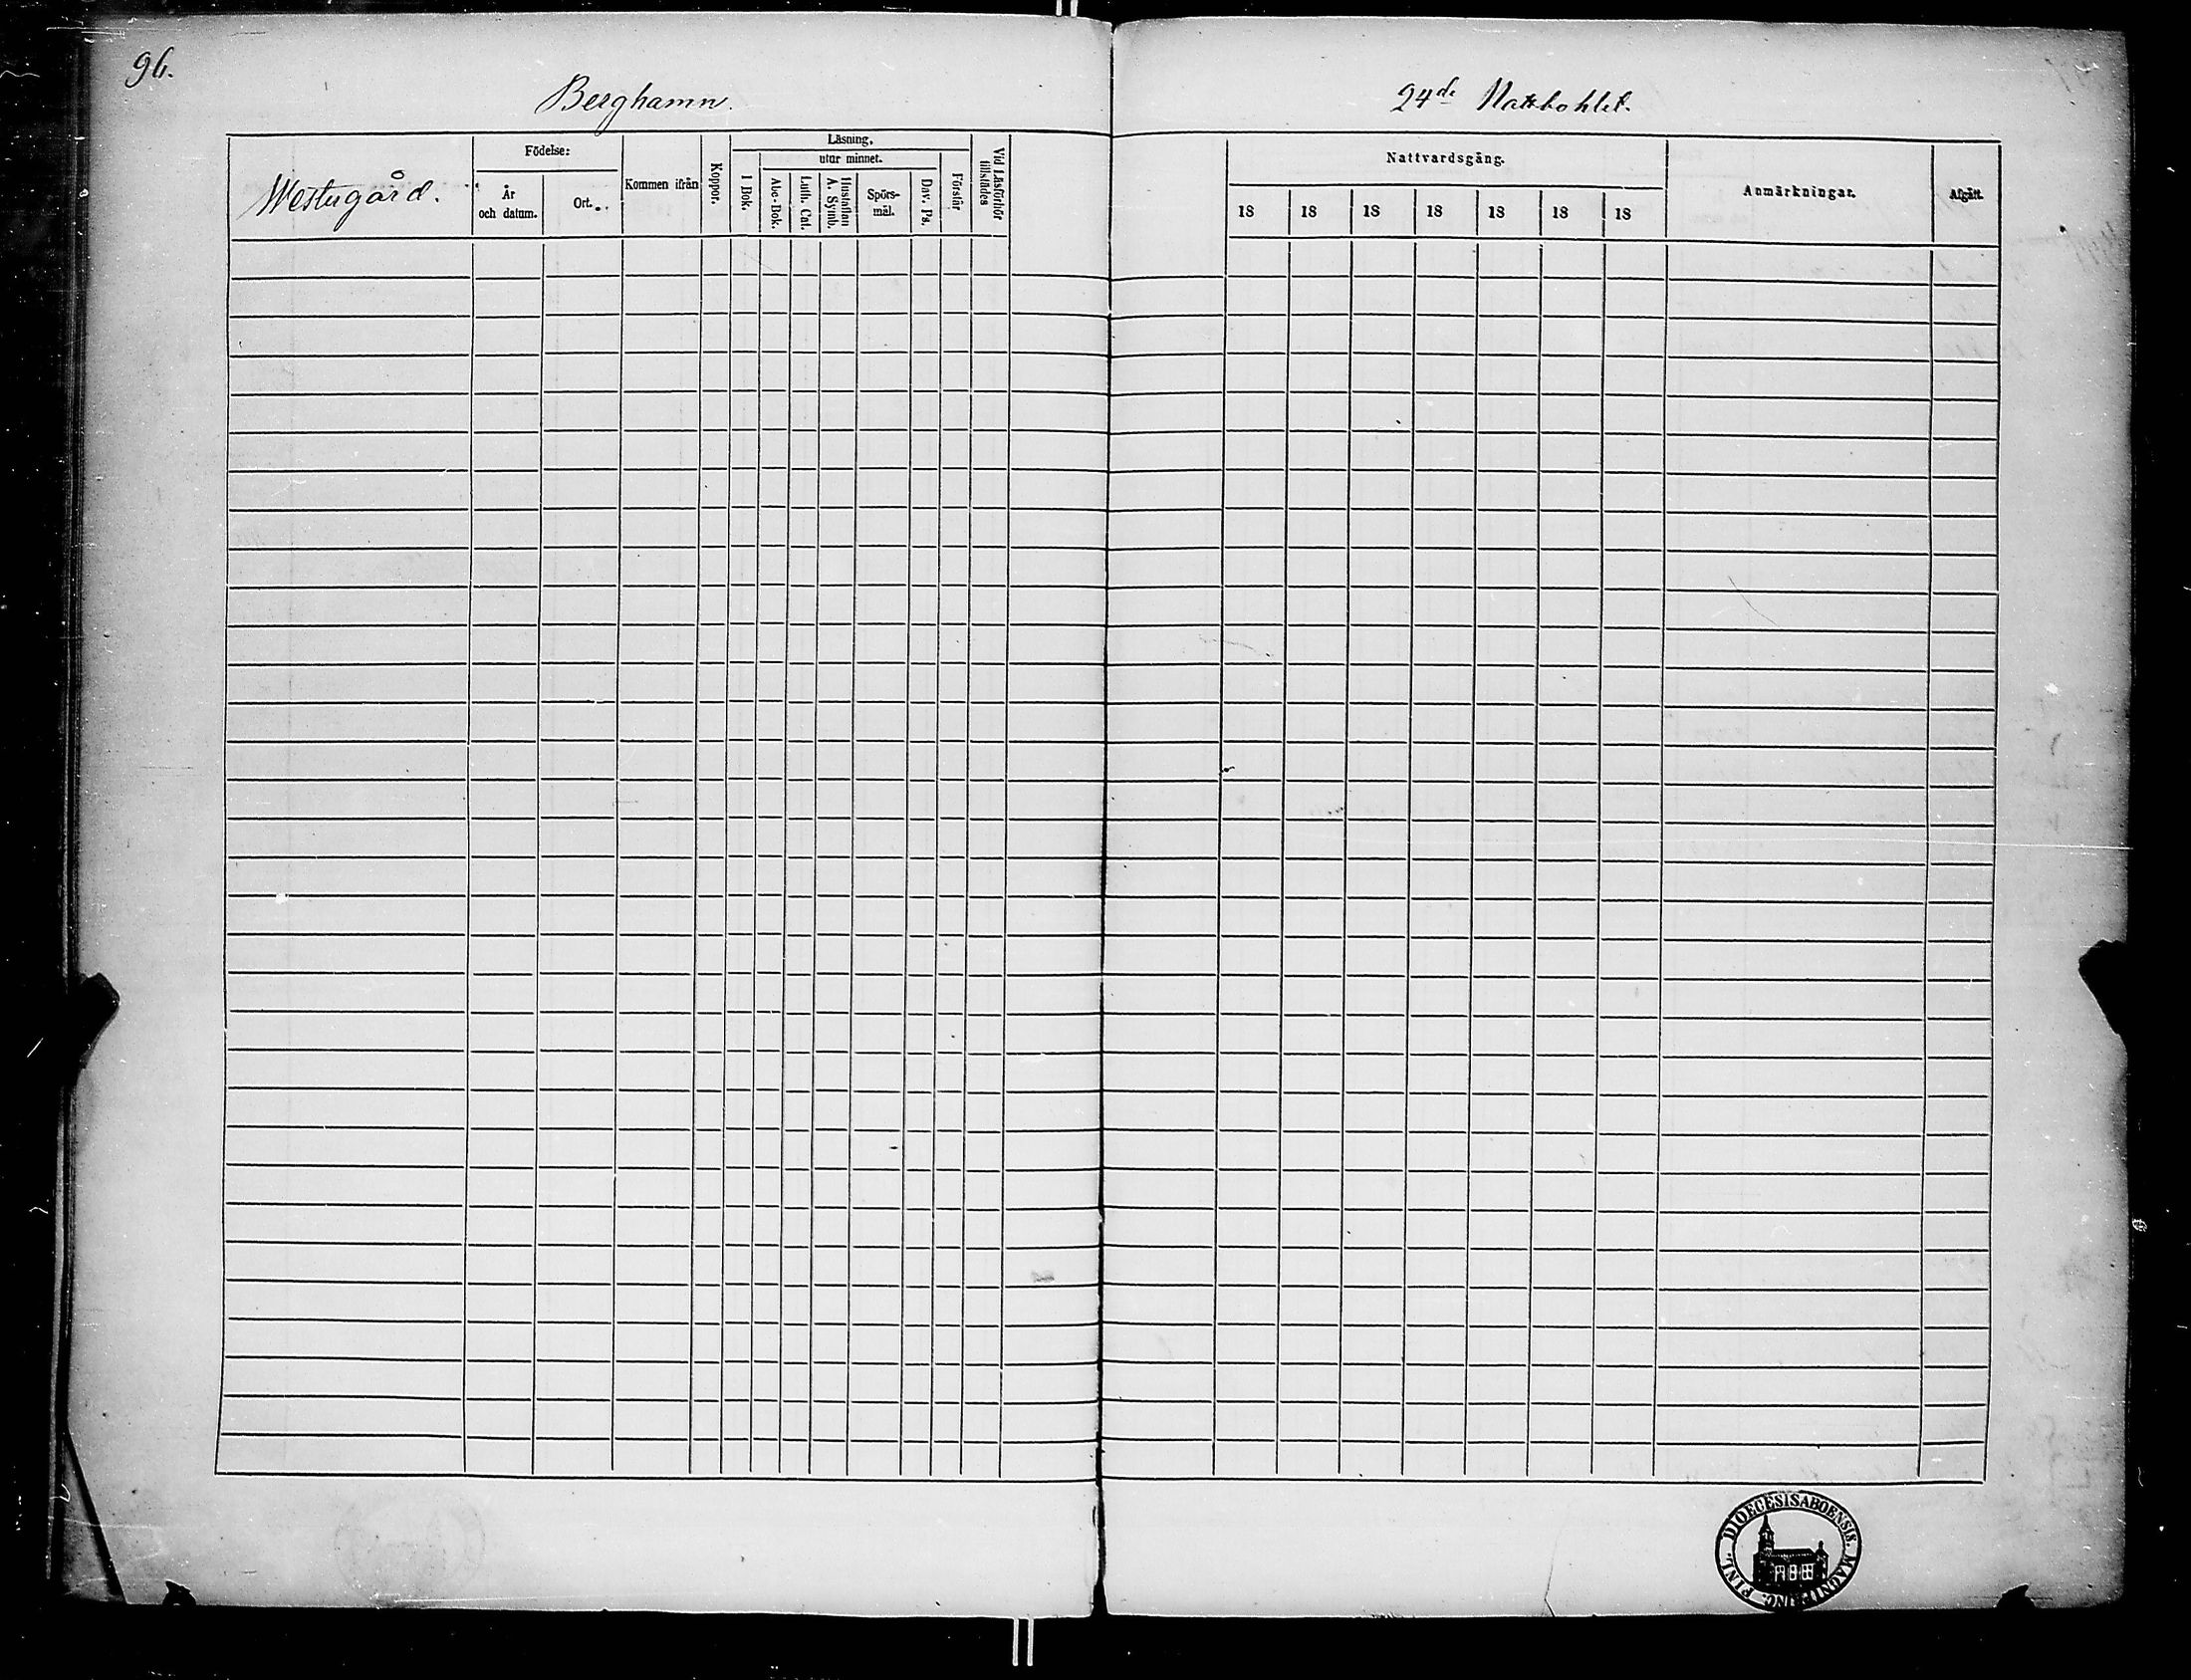 96.
Berghamn.
24de Nattbohlet.
Westergård.
Födelse:
År
och datum.
Ort.
Kommen ifrån
Koppor.
Läsning,
utur minnet.
I Bok.
Abc-Bok.
Luth. Cat.
Hustaflan
A. Symb.
Spörs-
mål.
Dav. Ps.
Förstår
Vid Läsförhör
tillstädes
Nattvardsgång.
18 18 18 18 18 18 18
Anmärkningar.
Afgått.
DIOECESIS ABOENSIS. MAGNI PRINC. FINL.